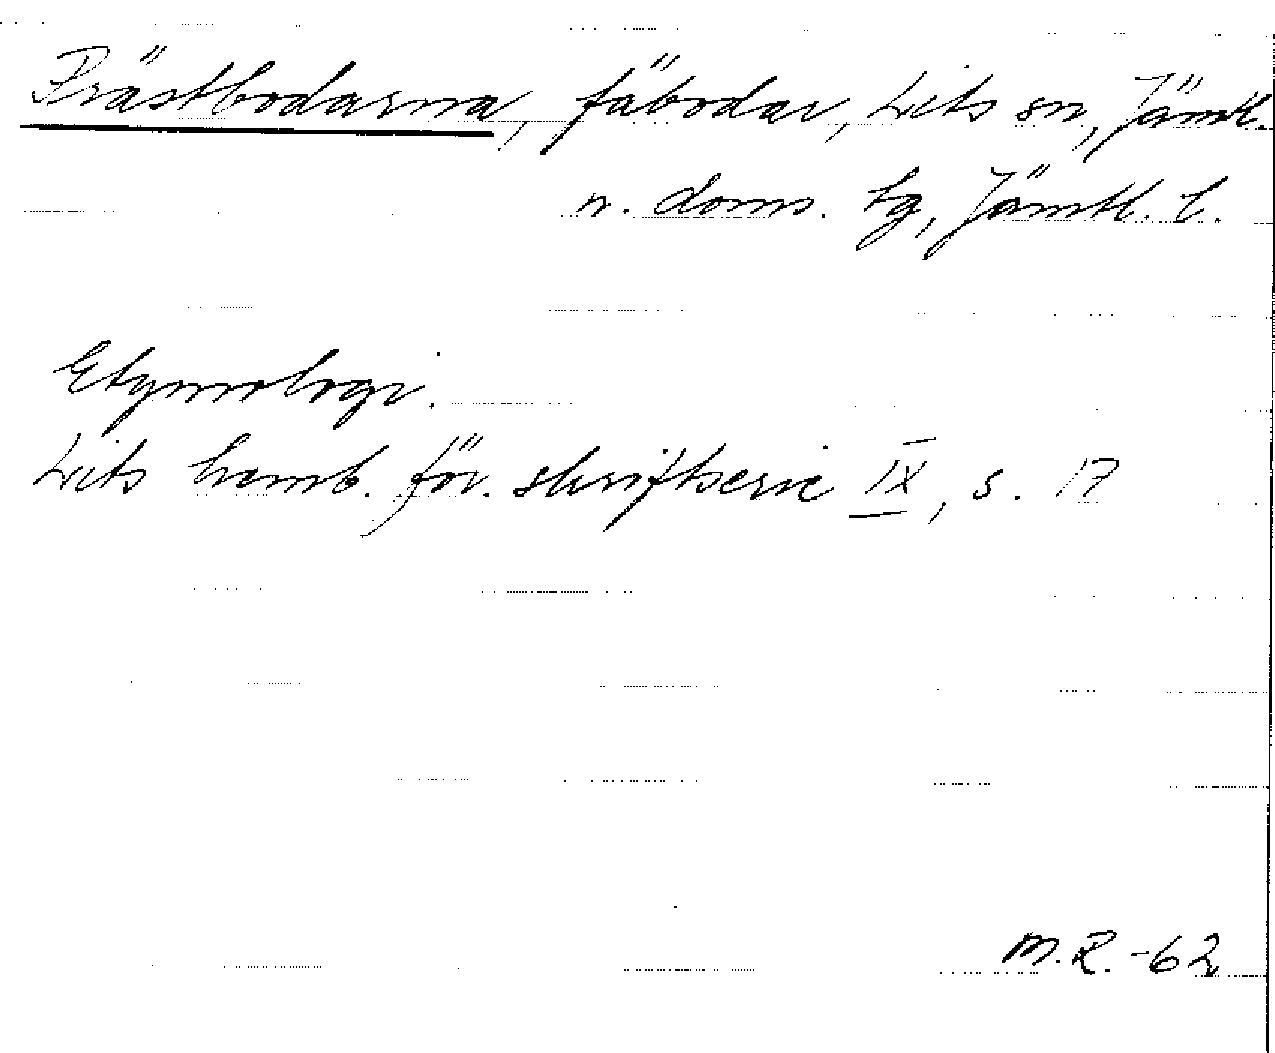 Prästbodarna, fäbodar, Lits sn, Jämtl.
n. doms. tg, Jämtl. l.
Etymologi.
Lits hemb. för. skriftserie IX, s. 17
M.R.-62